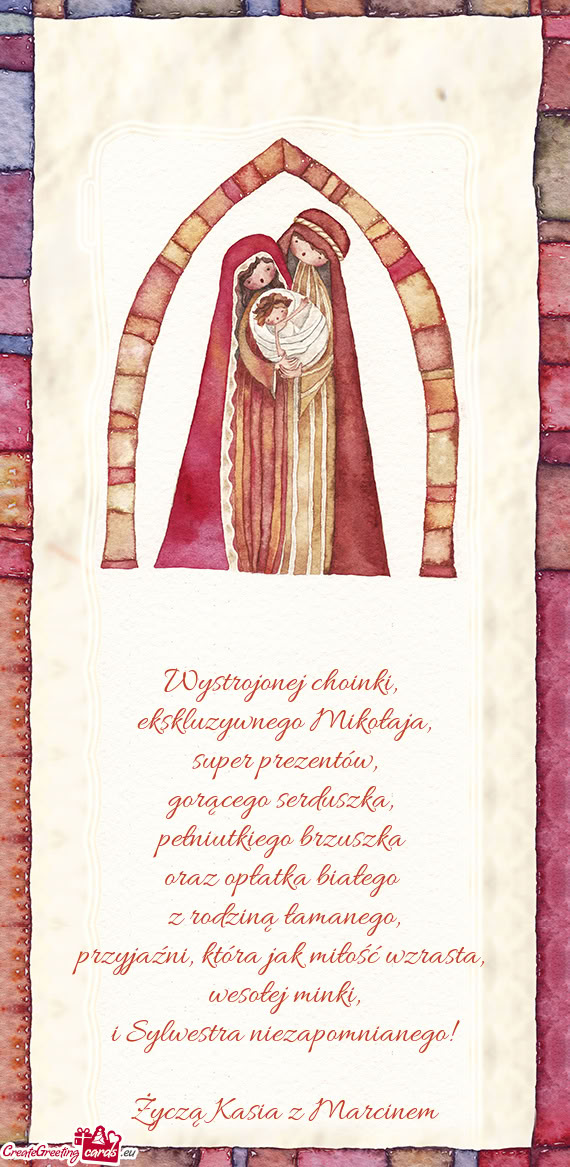 Wystrojonej choinki,
ekskluzywnego Mikołaja,
super prezentów,
gorącego serduszka,
pełniutkiego brzuszka
oraz opłatka białego
z rodziną łamanego,
przyjaźni, która jak miłość wzrasta,
wesołej minki,
i Sylwestra niezapomnianego!
Życzą Kasia z Marcinem
CreateGreeting cards .eu